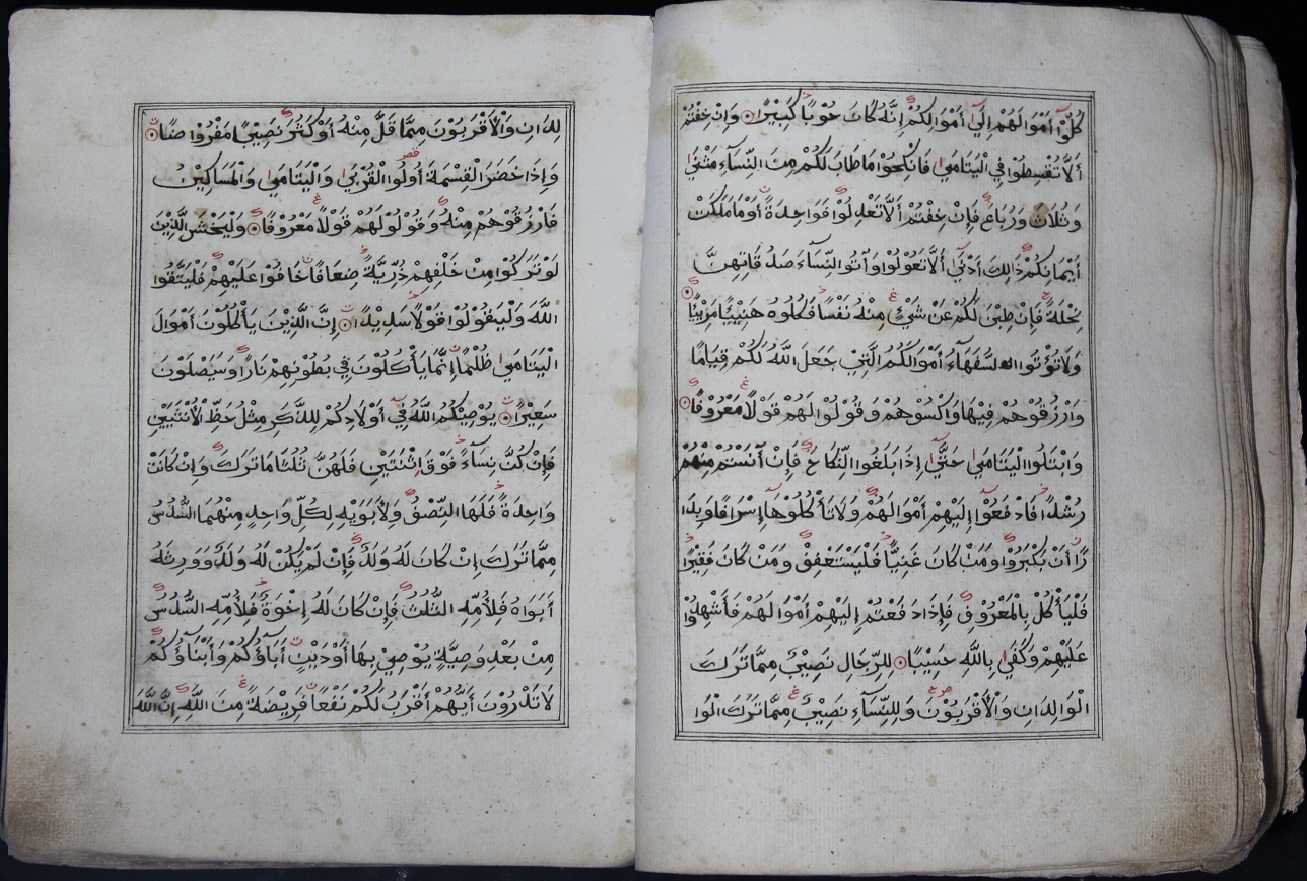 كُلُوْا أَمْوَالَهُمْ إِلَىٰٓ أَمْوَالِكُمْ إِنَّهُ كَانَ حُوْبًا كَبِيْرًا وَاِنْ خِفْتُمْ
أَلَّا تُقْسِطُوْا فِي الْيَتَامَىٰ فَانْكِحُوْا مَا طَابَ لَكُمْ مِنَ النِّسَآءِ مَثْنَىٰ
وَثُلَاثَ وَرُبَاعَ فَإِنْ خِفْتُمْ أَلَّا تَعْدِلُوْا فَوَاحِدَةً أَوْ مَا مَلَكَتْ
أَيْمَانُكُمْ ذَالِكَ أَدْنَىٰٓ أَلَّا تَعُوْلُوْا وَآتُوا النِّسَآءَ صَدُقَاتِهِنَّ
نِحْلَةً فَإِنْ طِبْنَ لَكُمْ عَنْ شَيْءٍ مِنْهُ نَفْسًا فَكُلُوْهُ هَنِيْئًا مَرِيْئًا
وَلَا تُؤْتُوا السُّفَهَآءَ أَمْوَالَكُمُ الَّتِيْ جَعَلَ اللَّهُ لَكُمْ قِيَامًا
وَارْزُقُوْهُمْ فِيْهَا وَاكْسُوْهُمْ وَقُوْلُوْا لَهُمْ قَوْلًا مَعْرُوْفًا
وَابْتَلُوا الْيَتَامَىٰ حَتَّىٰٓ إِذَا بَلَغُوا النِّكَاحَ فَإِنْ آنَسْتُمْ مِنْهُمْ
رُشْدًا فَادْفَعُوْٓا إِلَيْهِمْ أَمْوَالَهُمْ وَلَا تَأْكُلُوْهَآ إِسْرَافًا وَبِدَا
رًا أَنْ يَكْبَرُوْا وَمَنْ كَانَ غَنِيًّا فَلْيَسْتَعْفِفْ وَمَنْ كَانَ فَقِيْرًا
فَلْيَأْكُلْ بِالْمَعْرُوْفِ فَإِذَا دَفَعْتُمْ إِلَيْهِمْ أَمْوَالَهُمْ فَأَشْهِدُوْا
عَلَيْهِمْ وَكَفَىٰ بِاللَّهِ حَسِيْبًا لِلرِّجَالِ نَصِيْبٌ مِمَّا تَرَكَ
الْوَالِدَانِ وَالْأَقْرَبُوْنَ وَلِلنِّسَآءِ نَصِيْبٌ مِمَّا تَرَكَ الْوَا
لِدَانِ وَالْأَقْرَبُوْنَ مِمَّا قَلَّ مِنْهُ أَوْ كَثُرَ نَصِيْبًا مَفْرُوْضًا
وَإِذَا حَضَرَ الْقِسْمَةَ أُولُوا الْقُرْبَىٰ وَالْيَتَامَىٰ وَالْمَسَاكِيْنُ
فَارْزُقُوْهُمْ مِنْهُ وَقُوْلُوْا لَهُمْ قَوْلًا مَعْرُوْفًا وَلْيَخْشَ الَّذِيْنَ
لَوْ تَرَكُوْا مِنْ خَلْفِهِمْ ذُرِّيَّةً ضِعَافًا خَافُوْا عَلَيْهِمْ فَلْيَتَّقُوا
اللَّهَ وَلْيَقُوْلُوْا قَوْلًا سَدِيْدًا إِنَّ الَّذِيْنَ يَأْكُلُوْنَ أَمْوَالَ
الْيَتَامَىٰ ظُلْمًا إِنَّمَا يَأْكُلُوْنَ فِي بُطُوْنِهِمْ نَارًا وَسَيَصْلَوْنَ
سَعِيْرًا يُوْصِيْكُمُ اللَّهُ فِيٓ أَوْلَادِكُمْ لِلذَّكَرِ مِثْلُ حَظِّ الْأُنْثَيَيْنِ
فَإِنْ كُنَّ نِسَآءً فَوْقَ اثْنَتَيْنِ فَلَهُنَّ ثُلُثَا مَا تَرَكَ وَاِنْ كَانَتْ
وَاحِدَةً فَلَهَا النِّصْفُ وَلِأَبَوَيْهِ لِكُلِّ وَاحِدٍ مِنْهُمَا السُّدُسُ
مِمَّا تَرَكَ اِنْ كَانَ لَهُ وَلَدٌ فَإِنْ لَمْ يَكُنْ لَهُ وَلَدٌ وَوَرِثَهُ
أَبَوَاهُ فَلِأُمِّهِ الثُّلُثُ فَإِنْ كَانَ لَهُ إِخْوَةٌ فَلِأُمِّهِ السُّدُسُ
مِنْ بَعْدِ وَصِيَّةٍ يُوْصِيْ بِهَا أَوْ دَيْنٍ أَبَاؤُكُمْ وَأَبْنَاؤُكُمْ
لَا تَدْرُوْنَ أَيُّهُمْ أَقْرَبُ لَكُمْ نَفْعًا فَرِيْضَةً مِنَ اللَّهِ إِنَّ اللَّهَ